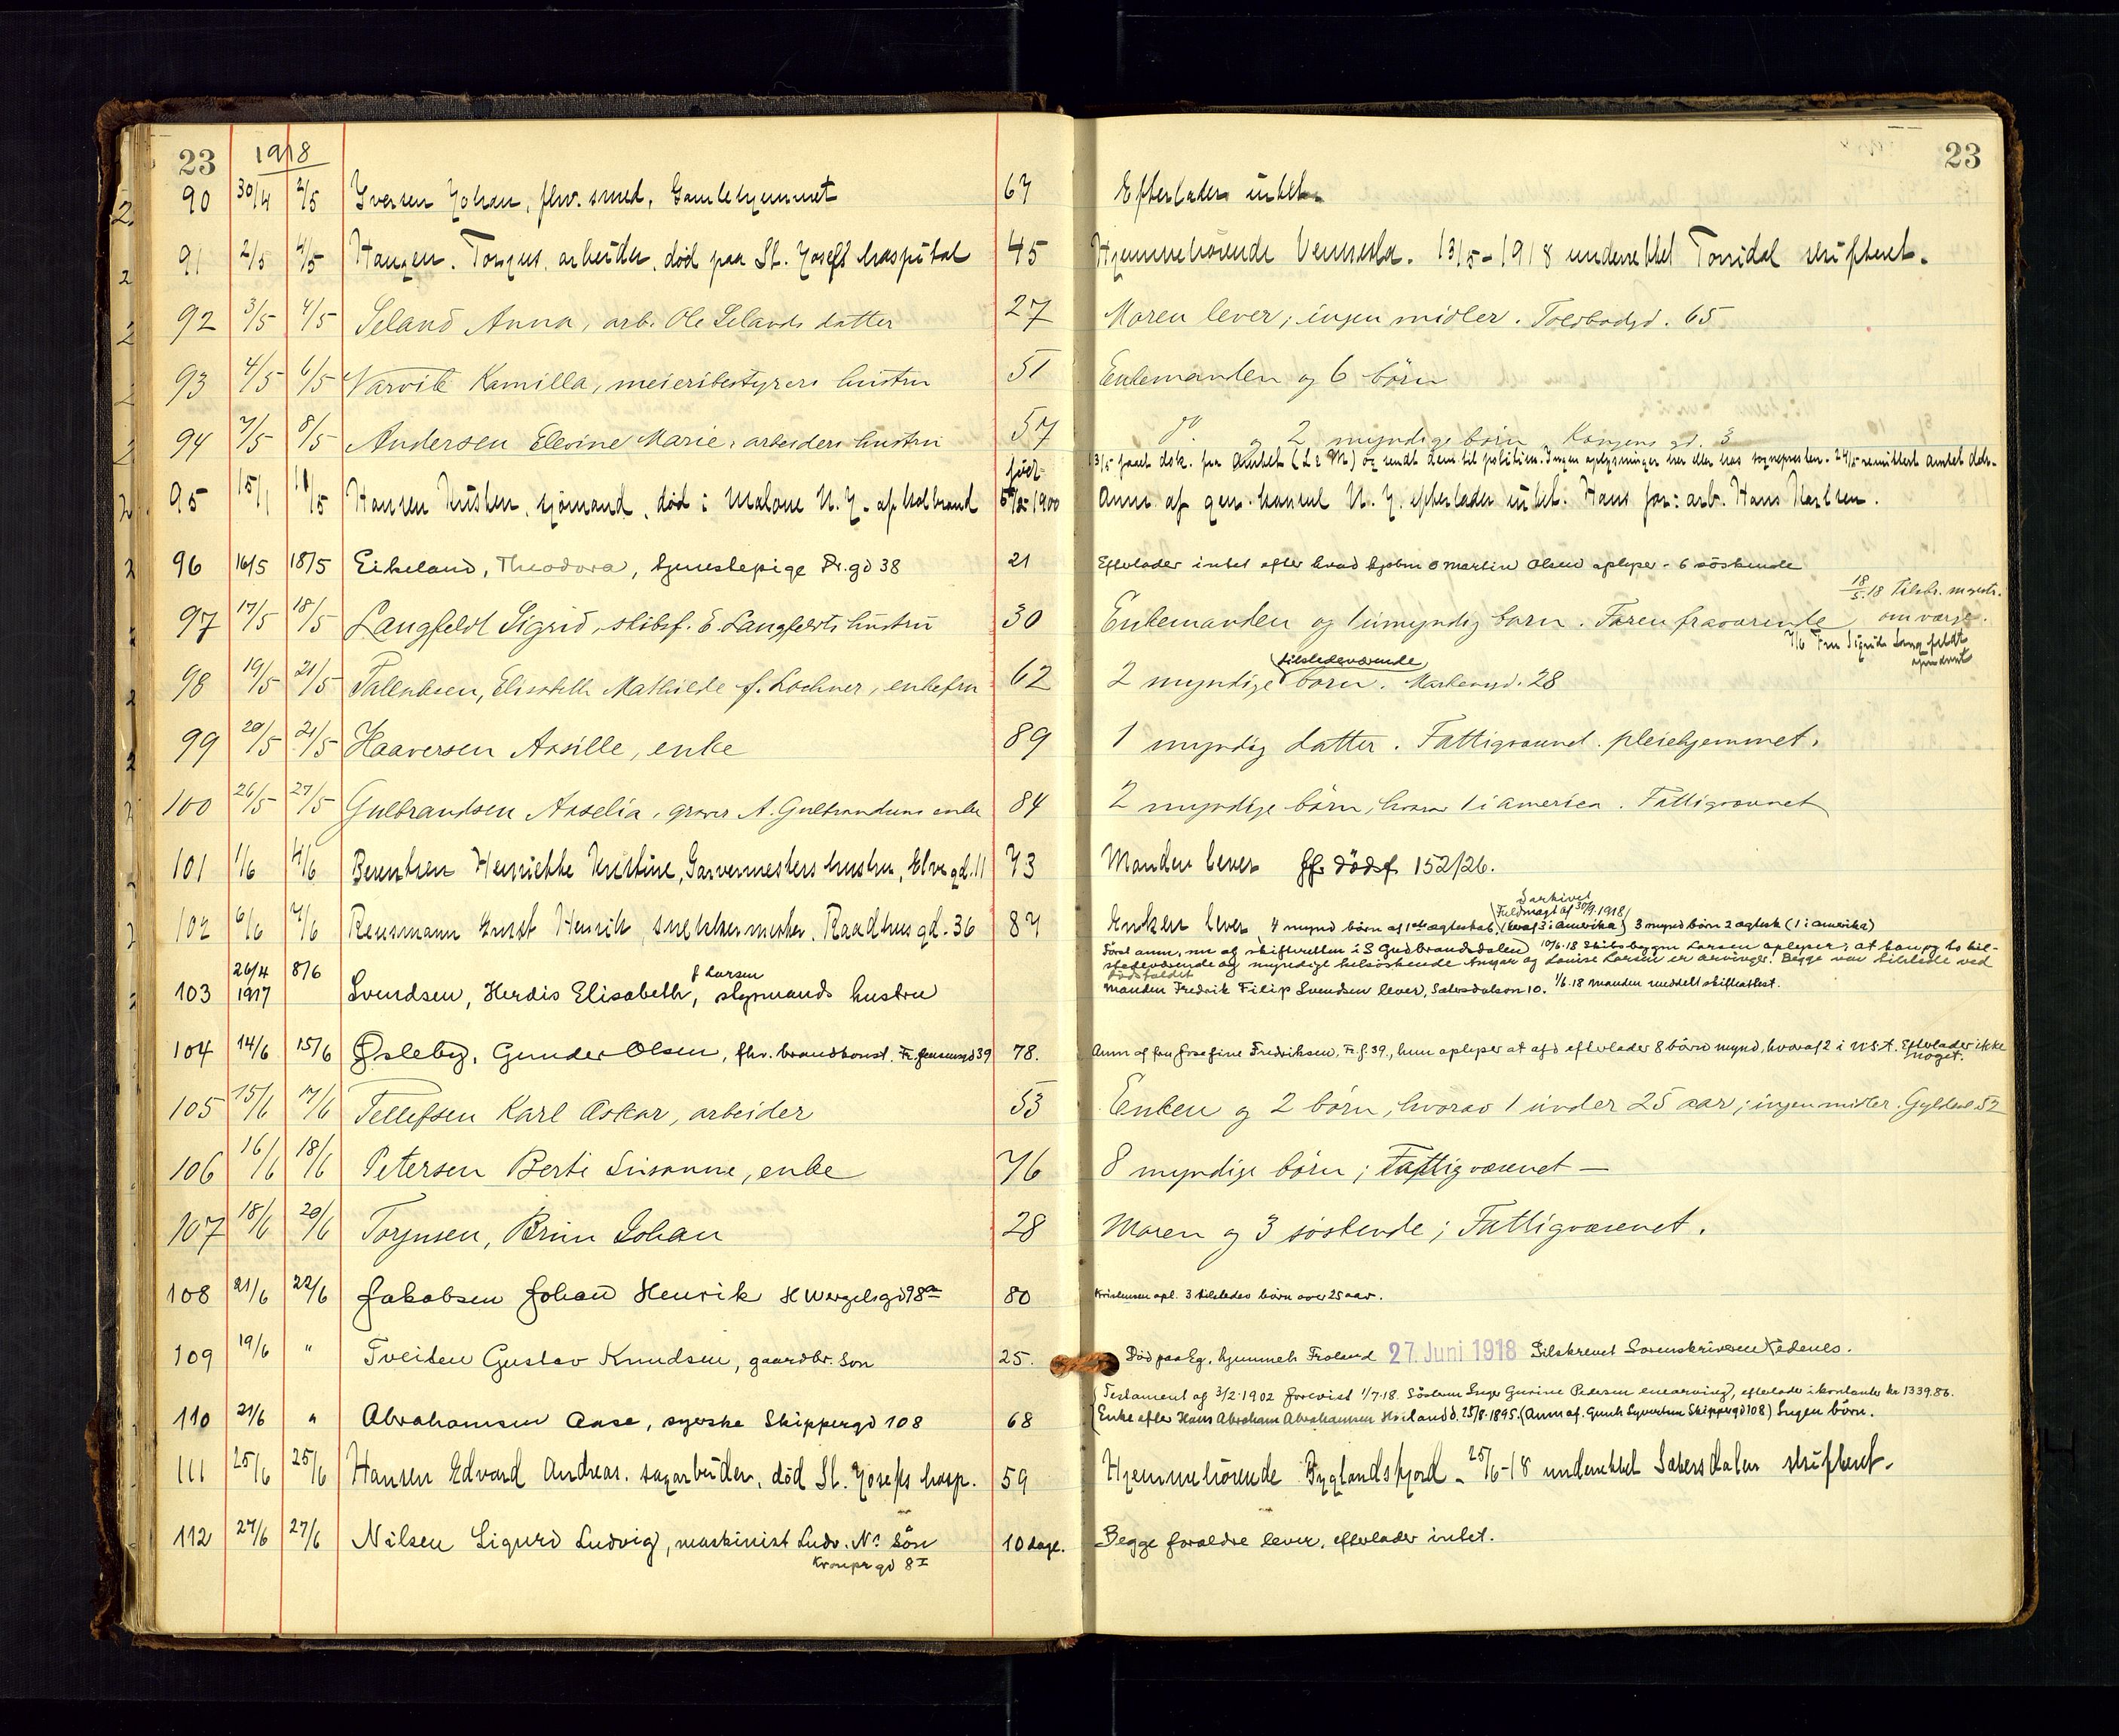 23 1918
23
90 30/4 2/5 Iversen Johan, fhv. smed, Gamlehjemmet 67 Efterlader intet.
91 2/5 4/5 Hangen, Torgus, arbeider, død paa St. Josefs hospital 45 Hjemmehørende Vennesla. 13/5-1918 underrettet Torridal skifteret.
92 3/5 4/5 Seland Anna, arb. Ole Selands datter 27 Moren lever; ingen midler. Toldbodgd. 65
93 4/5 6/5 Varvik Kamilla, meieribestyrers hustru 51 Enkemanden og 6 børn
94 7/5 8/5 Andersen Elevine Marie, arbeiders hustru 57 do og 2 myndige børn, Kongens gd. 3
født
13/5 dok. fra Amtet og sendt dem til politiet. Ingen oplysninger her eller hos sognepresten. 24/5 remittert amtet dok.
95 15/1 11/5 Hansen, sjømand, død i Malone N.Y. af 1900 Anm. af gen. konsul N.Y. efterlader intet. Hans far: arb. Hans Karlsen.
96 16/5 18/5 Eikeland, Theodora, tjenestepige Dr.gd 38 21 Efterlader intet efter hvad Martin Olsen oplyser. 6 søskende
18/5.18 Tilskr. magistr.
97 17/5 18/5 Langfeldt Sigrid, skibsf. E. Langfeldts hustru 30 Enkemanden og 1 umyndig barn. Faren fraværende om værge.
7/6 Fru Sigrid Langfeldt
tilstedeværende
98 19/5 21/5 Tallaksen, Elisabeth Mathilde f. Lochner, enkefru 62 2 myndige børn. Markensgd. 28
99 20/5 21/5 Haaversen Assille, enke 89 1 myndig datter. Fattigvæsenet. pleiehjemmet.
100 26/5 27/5 Gulbrandsen Asselia, graver A. Gulbrandsens enke 84 2 myndige børn, hvorav 1 i america. Fattigvæsenet
101 1/6 4/6 Berentsen Henriette Kristine, Garvermesters hustru, Elvegd. 11 73 Manden lever jfr. dødsf 152/26.
i arkivet
Fuldmagt af 30/9.1918
102 6/6 7/6 Reusmann Ernst Henrik, snekkermester. Raadhusgd. 36 87 Enken lever 4 mynd børn af 1ste ægteskab (hvoraf 3 i Amerika) 3 mynd børn 2 ægtesk (1 i amerika)
Først anm. nu af skifteretten i S Gudbrandsdalen 10/6.18 Skibsbyggm Larsen oplyser, at han og to til-
stedeværende og myndige helsøskende Ansgar og Louise Larsen er arvinger. Begge var tilstede ved
dødsfaldet
26/4 8/6 f Larsen
103 1917 Svendsen, Herdis Elisabeth, styrmands hustru manden Fredrik Filip Svendsen lever, Sætersdalsvn 10. 1/6.18 manden meddelt skifteattest.
104 14/6 15/6 Øsleby, Gunder Olsen, fhv. brandkonst. Fr. 39 78. Anm af fru Josefine Fredriksen, Fr. g. 39., hun oplyser at afd efterlader 8 børn mynd, hvoraf 2 i U.S.A. Efterlader ikke
noget.
105 15/6 17/6 Tellefsen Karl Oskar, arbeider 53 Enken og 2 børn, hvorav 1 under 25 aar; ingen midler. Gyldenl. 52
106 16/6 18/6 Petersen Berte Susanne, enke 76 8 myndige børn; Fattigvæsenet —
107 18/6 20/6 Torjusen, Brun Johan 28 Moren og 3 søskende; Fattigvæsenet.
108 21/6 22/6 Jakobsen Johan Henrik H Wergelsgd 98a 80 Kristensen opl. 3 tilstedev børn over 25 aar.
109 19/6 " Tveiten Gustav Knudsen, gaardbr. Søn 25. Død paa Eg, hjemmeh Froland 27. Juni 1918 Tilskrevet Sorenskriveren Nedenes.
Testament af 3/2.1902 forevist 1/7.18. Søsteren Inger Gurine Pedersen enearving, efterlader i kontanter kr 1339.86.
110 21/6 " Abrahamsen Aase, syerske Skippergd 108 68 Enke efter Hans Abraham Abrahamsen Høiland d. 25/8.1895. (Anm af. Gunh Syvertsen Skippergd 108) Ingen børn.
111 25/6 25/6 Hansen Edvard Andreas, sagarbeider, død St. Josefs hosp. 59 Hjemmehørende Byglandsfjord. 25/6-18 underrettet Sætersdalen skifteret.
112 27/6 27/6 Nilsen Sigurd Ludvig, maskinist Ludv. N's Søn 10 dage. Begge forældre lever, efterlader intet.
Kronprgd 8 I